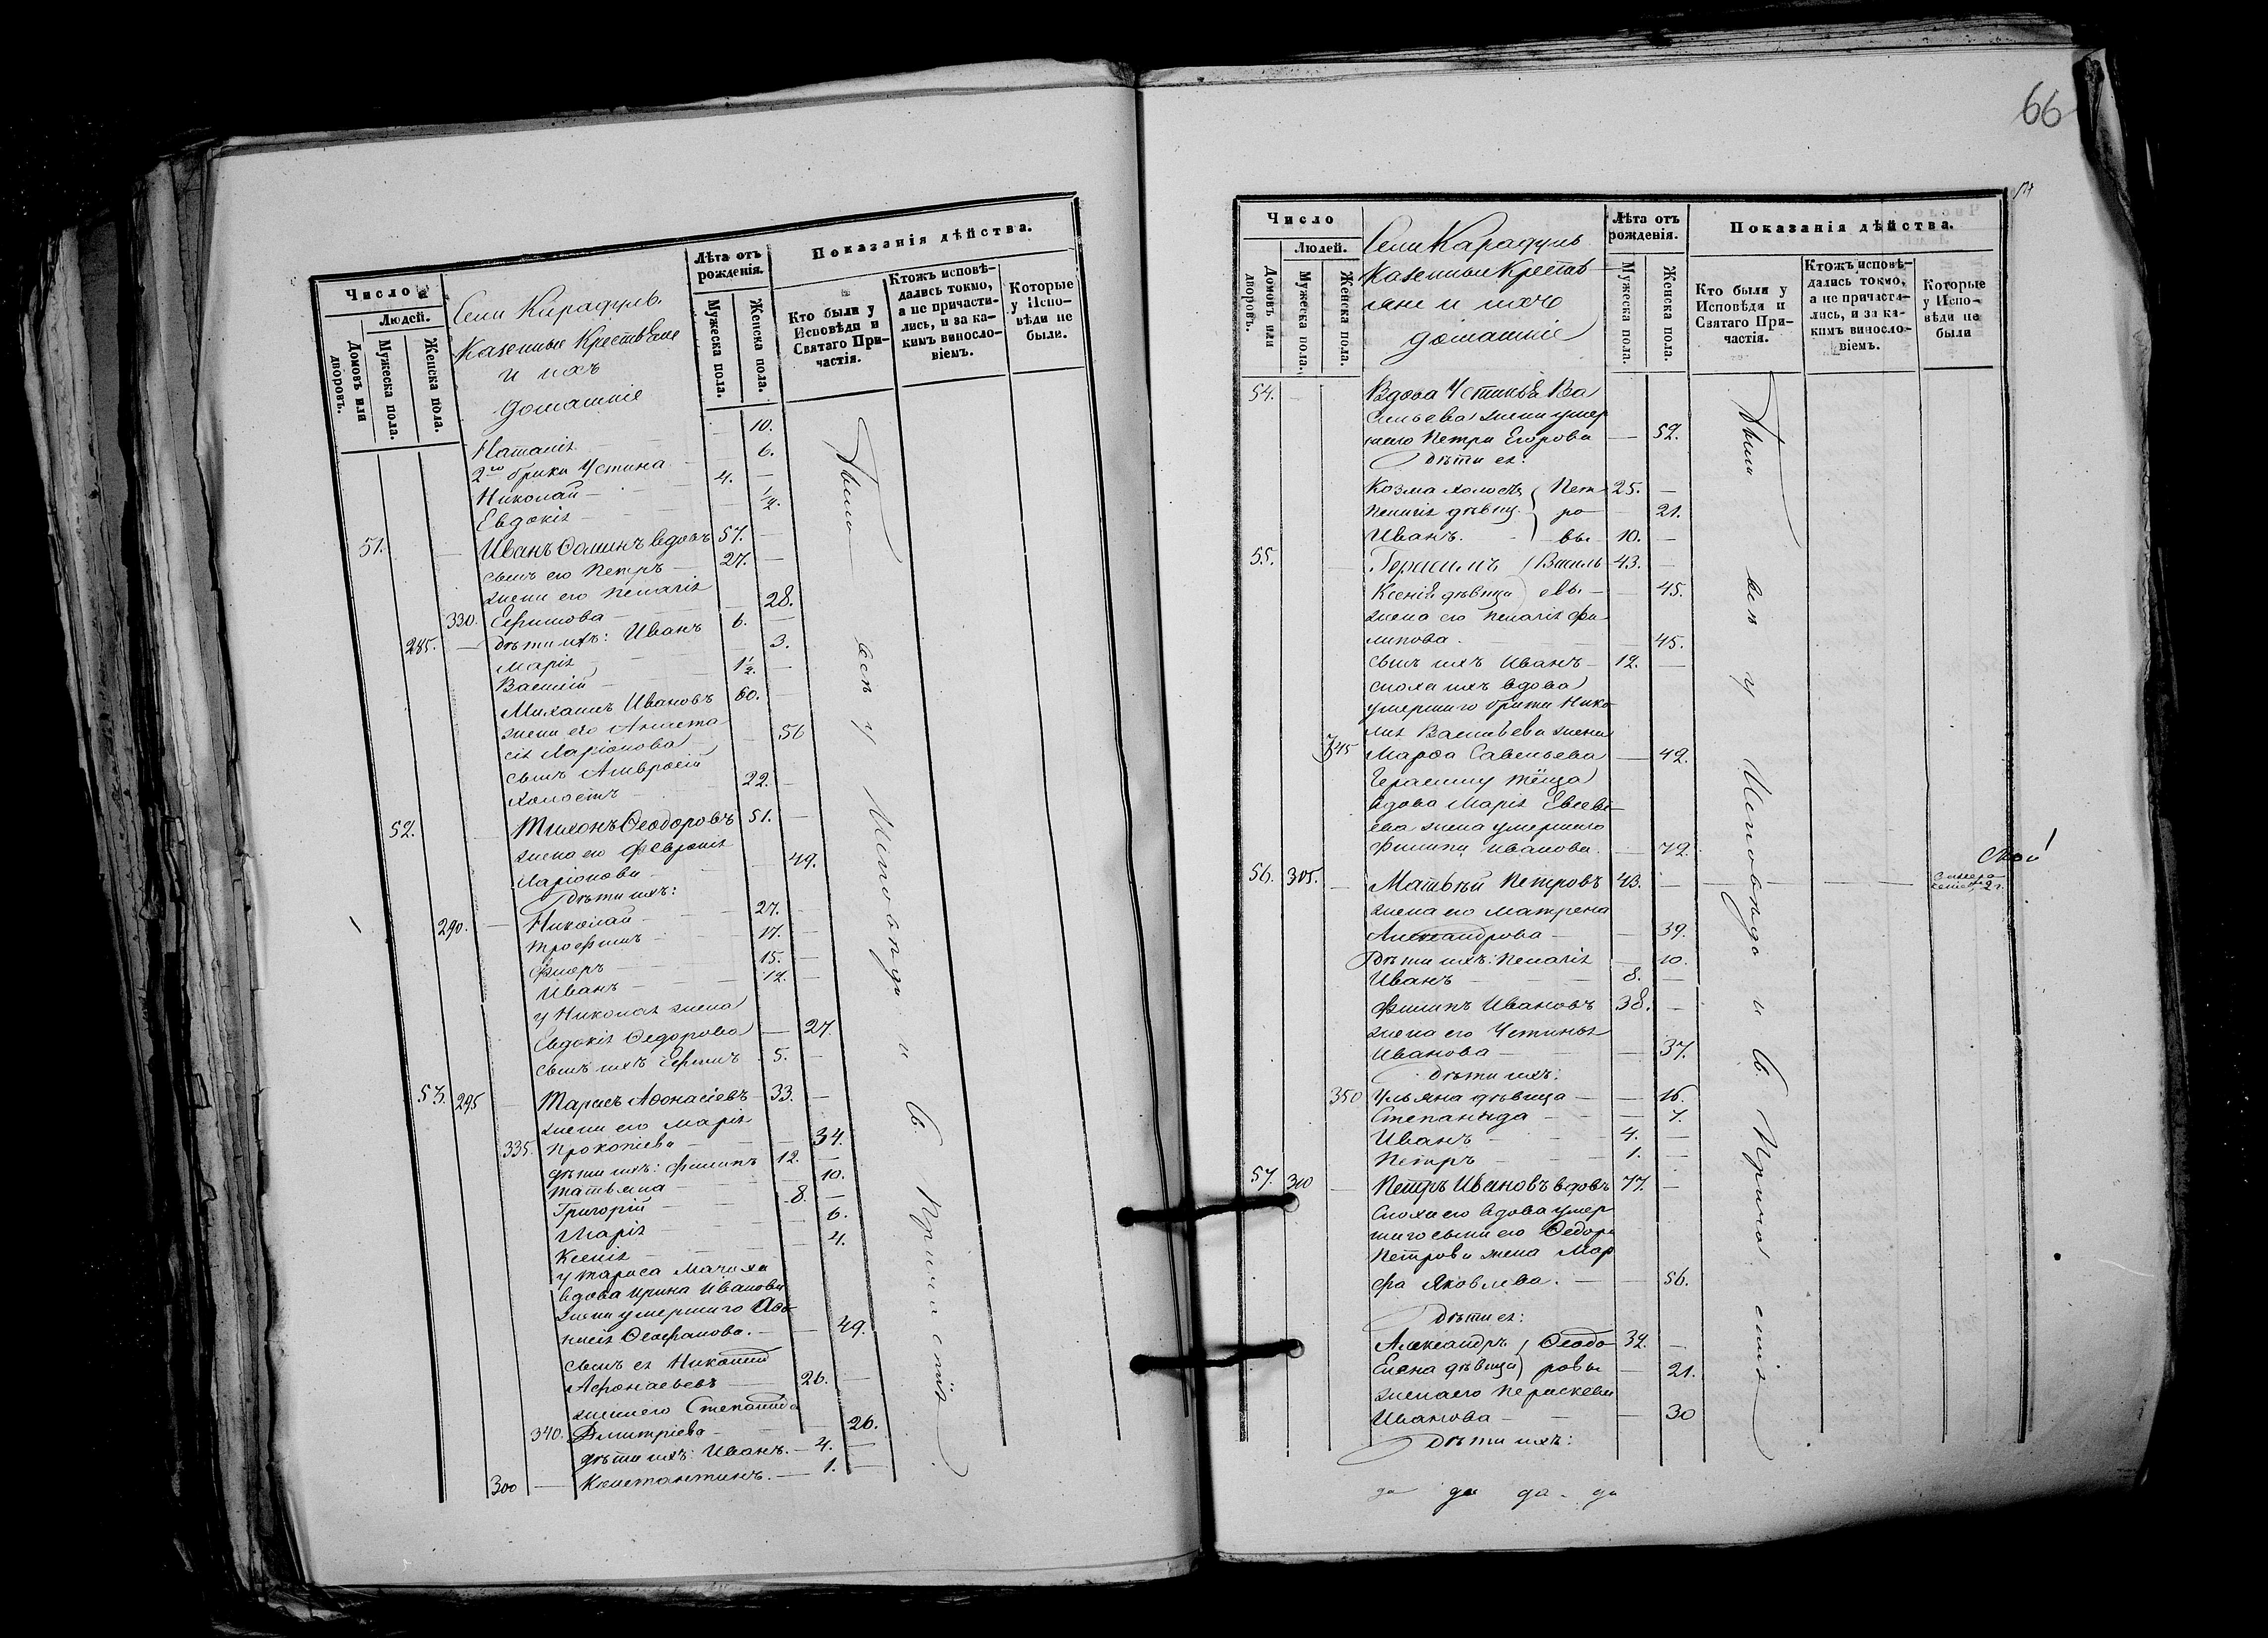 Число
Людей.
Домовъ или дворовъ.
Мужеска пола.
Женска пола.
Села Карадулъ
Казенные Крестьяне
и ихъ
домашніе
Лѣта отъ рожденія.
Мужеска пола.
Женска пола.
Показанія дѣйства.
Кто были у Исповѣди и Святаго Причастія.
Ктожъ исповѣдались токмо, а не причастились, и за какимъ винословіемъ.
Которые у Исповѣди не были.
Наталія 10.
2го брака Устина 6.
Николай 4.
Евдокія 1/2.
51. Иванъ Ѳоминъ вдовъ 57.
сынъ его Петръ 27.
жена его Пелагія
330. Ефимова 28.
285. дѣти ихъ: Иванъ 6.
Марія 3.
Василій 1 1/2.
Михаилъ Ивановъ 60.
жена его Анаста
сія Ларіонова 56
сынъ Амвросій
холостъ 22.
52. Тихонъ Ѳеодоровъ 51.
жена его Февронія
Ларіонова 49.
Дѣти ихъ:
290. Николай 27.
Трофимъ 17.
Флоръ 15.
Иванъ 12.
у Николая жена
Евдокія Ѳедорова 27.
сынъ ихъ Ефимъ 5.
53. 295 Тарасъ Аѳонасіевъ 33.
жена его Марія
335. Прокопіева 34.
дѣти ихъ: Филипъ 12.
Татьяна 10.
Григорій 8.
Марія 6.
Ксенія 4.
у Тараса Мачиха
вдова Ирина Иванова
жена умершаго Аѳо
насія Ѳеофанова. 49.
сынъ ея Николай
Афонасьевъ 26.
жена его Степанида
340. Димитріева 26.
дѣти ихъ: Иванъ. 4.
300 Константинъ. 1.
Были всѣ у Исповѣди и Св. Причастія
66
Число
Людей.
Домовъ или дворовъ.
Мужеска пола.
Женска пола.
Села Карадулъ
Казенные Кресть
яне и ихъ
домашніе
Лѣта отъ рожденія.
Мужеска пола.
Женска пола.
Показанія дѣйства.
Кто были у Исповѣди и Святаго Причастія.
Ктожъ исповѣдались токмо, а не причастились, и за какимъ винословіемъ.
Которые у Исповѣди не были
54. Вдова Устинья Ва
сильева жена умер
шаго Петра Егорова 52.
Дѣти ея:
Козма холостъ Пет 25.
Пелагія дѣвица ро 21.
Иванъ. вы 10.
55. Герасимъ Василь 43.
Ксенія дѣвица евы 45.
жена его Пелагія Фи
липова 45.
сынъ ихъ Иванъ 12.
сноха ихъ вдова
умершаго брата Нико
лая Васильева жена
345 Марѳа Савельева 42.
Герасиму тёща
вдова Марія Евсеві
ева жена умершаго
Филипа Иванова. 72.
56. 305. Матвѣй Петровъ 43.
жена его Матрена
Александрова 39.
Дѣти ихъ: Пелагія 10.
Иванъ 8.
Филипъ Ивановъ 38.
жена его Устинья
Иванова 37.
Дѣти ихъ:
350 Ульяна дѣвица 16.
Степанида 7.
Иванъ 4.
Петръ 1.
57. 310 Петръ Ивановъ вдовъ 77.
Сноха его вдова умер
шаго сына его Ѳедора
Петрова жена Мар
фа Яковлева. 56.
Дѣти ея:
Александръ Ѳеодо 32.
Елена дѣвица ровы 21.
жена его Параскева
Иванова 30
Дѣти ихъ:
Были всѣ у Исповѣди и Св. Причастія
да да да да